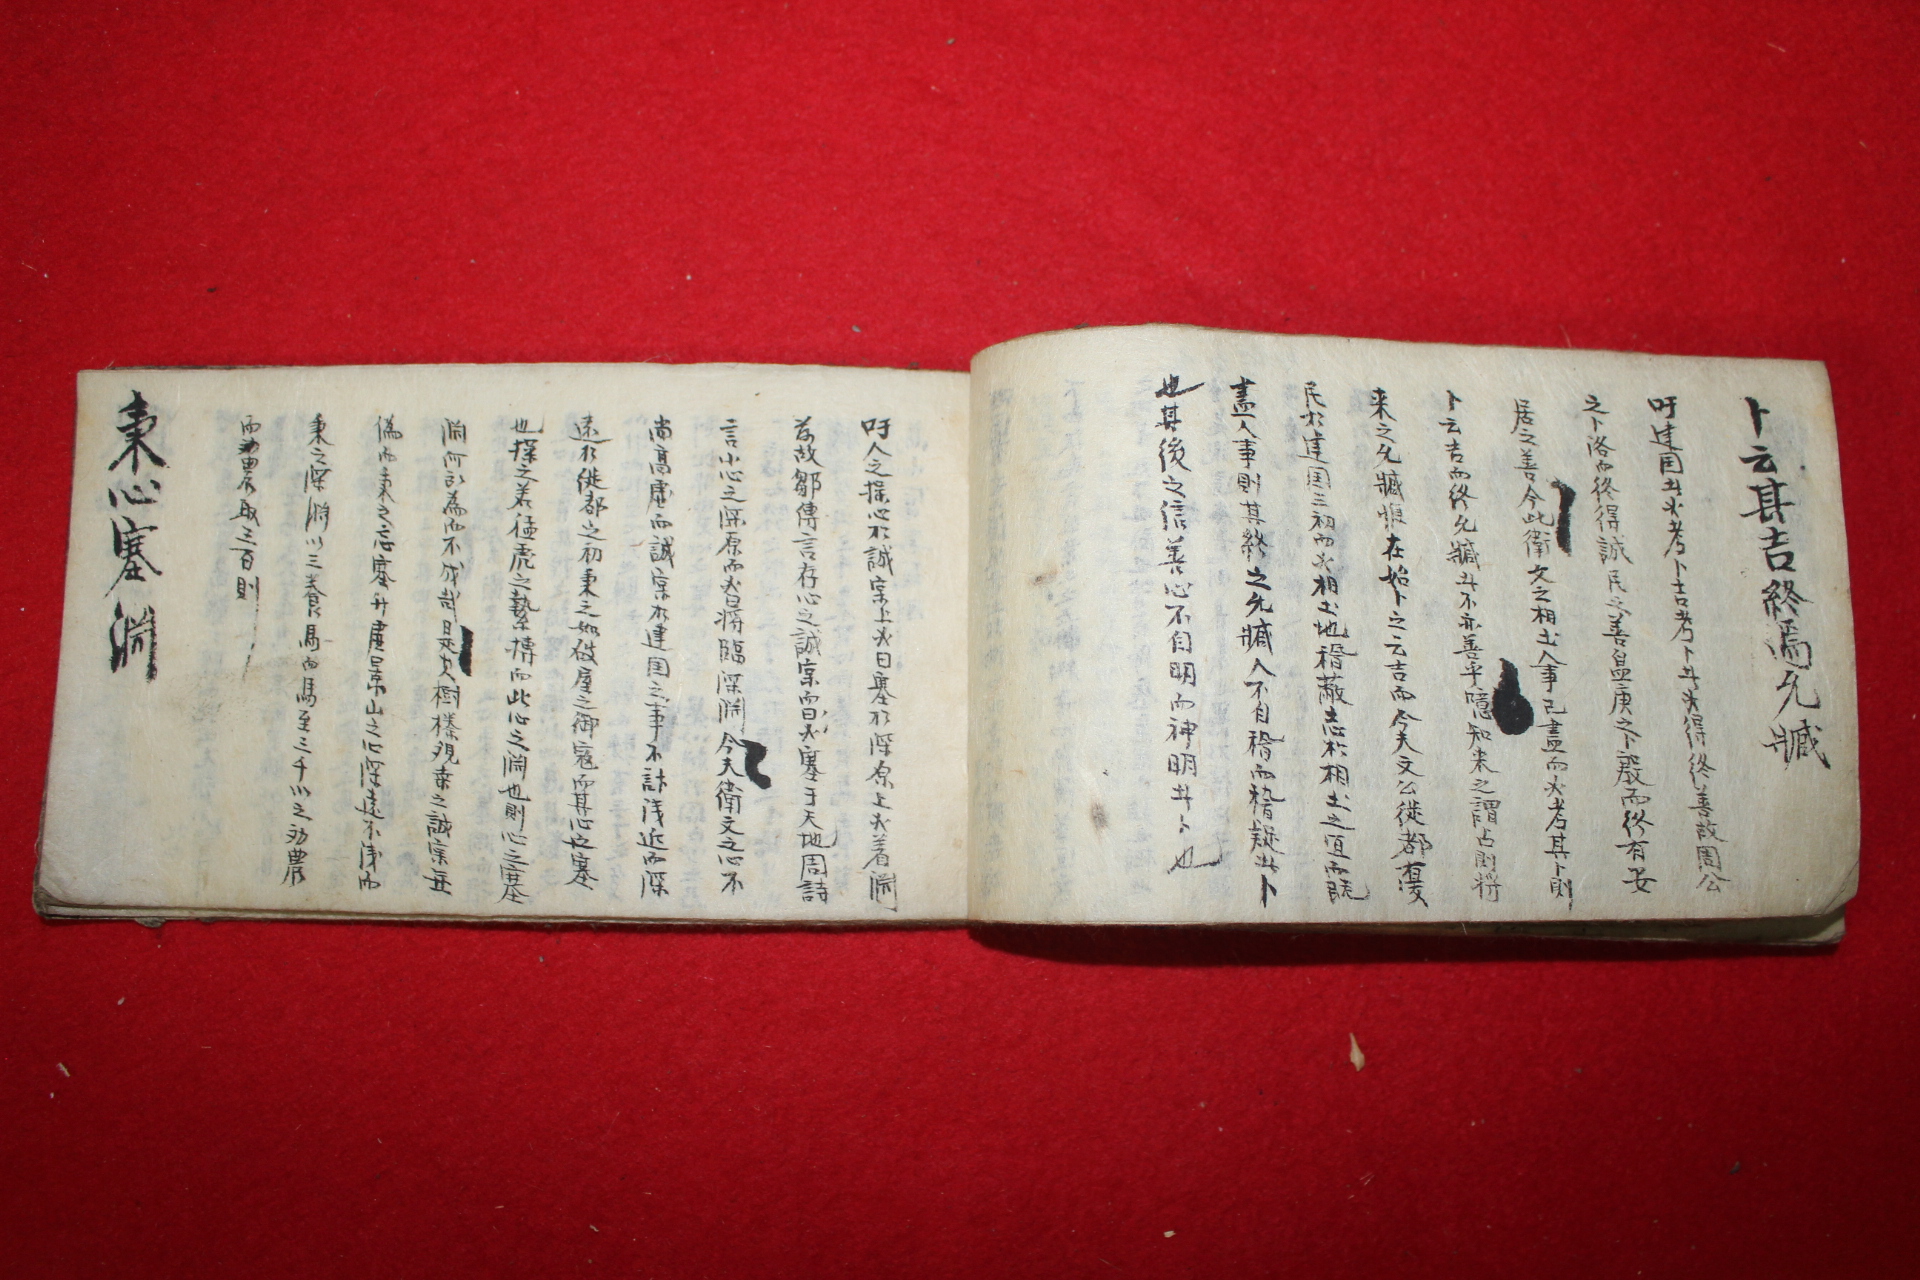 卜云其吉終焉允臧
吁建国者必考卜吉考卜者必得終善故周公
之卜洛而終得誠民之善盘庚之卜殷而終有安
居之善今此衛文之相土人事已盡而必考其卜則
卜云吉而終允臧者不亦善乎噫知来之謂占則将
来之允臧惟在始卜之云吉而今夫文公徙都有廈
民於建国之初而必相土地稽蔽志於相土之宜而既
盡人事則其終之允臧人不自稽而稽疑者卜
也其後之信善心不自明而神明者卜也
吁人之操心於誠宲上必曰塞於深原上必着淵
為故鄒傳言存心之誠宲而曰必塞于天地周詩
言小心之深原而必曰將臨深淵今夫衛文之心不
尚高虚而誠宲於建国之事不計浅近而深
遠於徙都之初秉之如破屋之御寇而其心也塞
也操之若猛虎之摯搏而此心之淵也則心之塞
淵何所為而不成哉是必樹榛观桒之誠宲無
偽而秉之志塞升虚景山之心深遠不浅而
秉之深淵以三養馬而馬至三千以之劝農
而劝農取三百則
秉心塞淵